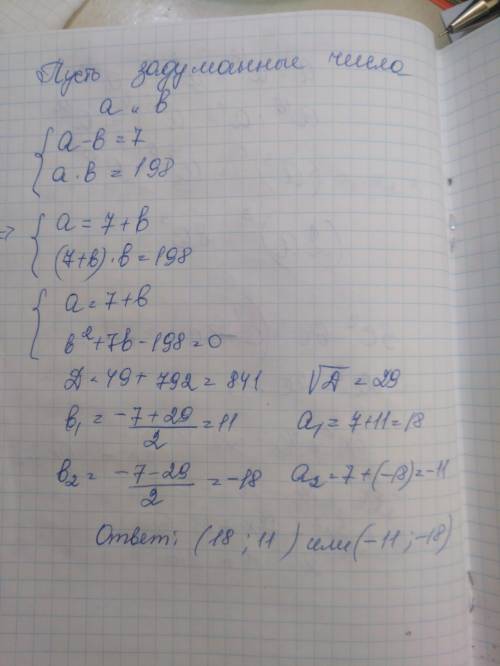 Пусть задуманные числа
a и b
a - b = 7
a · b = 198
=> a = 7 + b
(7+b) · b = 198
a = 7 + b
b² + 7b - 198 = 0
Д = 49 + 792 = 841 √Д = 29
b₁ = (-7 + 29)/2 = 11 a₁ = 7 + 11 = 18
b₂ = (-7 - 29)/2 = -18 a₂ = 7 + (-18) = -11
Ответ: (18 ; 11) или (-11 ; -18)